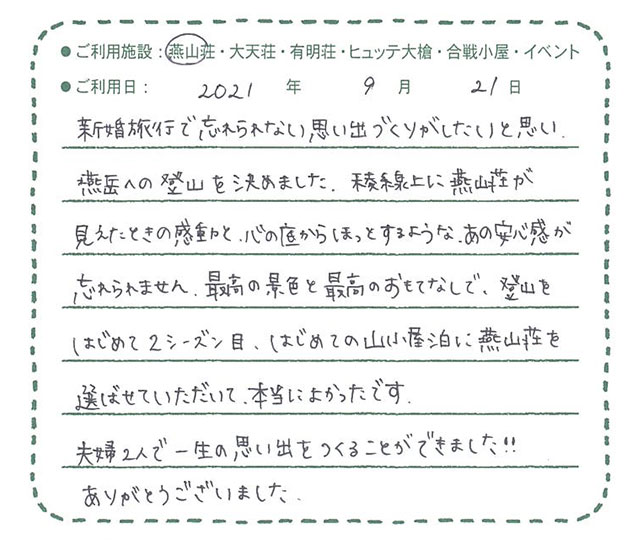 ●ご利用施設：燕山荘・大天荘・有明荘・ヒュッテ大槍・合戦小屋・イベント
●ご利用日： 2021 年 9 月 21 日
新婚旅行で忘れられない思い出づくりがしたいと思い、
燕岳への登山を決めました。稜線上に燕山荘が
見えたときの感動と、心の底からほっとするような、あの安心感が
忘れられません。最高の景色と最高のおもてなしで、登山を
はじめて2シーズン目、はじめての山小屋泊に燕山荘を
選ばせていただいて、本当によかったです。
夫婦2人で一生の思い出をつくることができました!!
ありがとうございました。